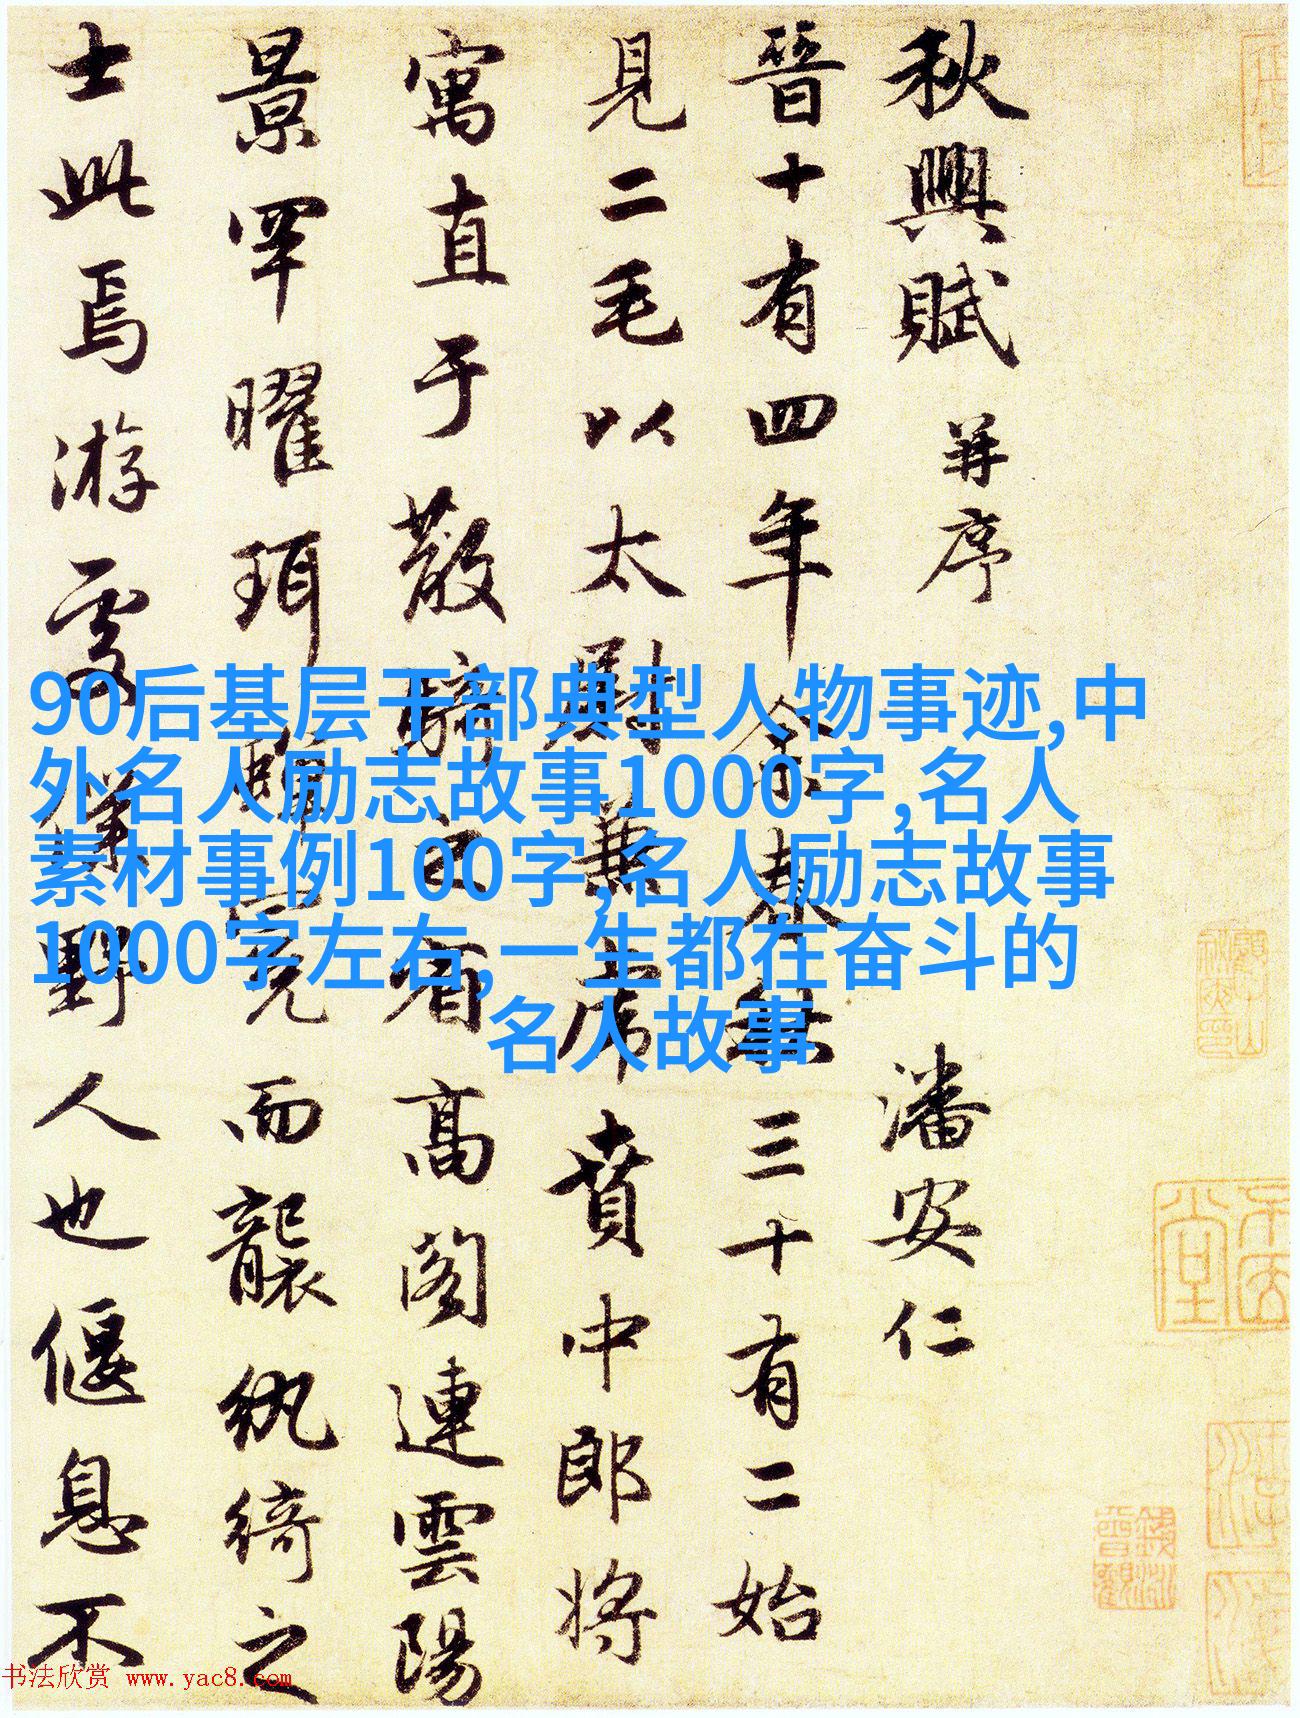 秋興賦 并序 潘安仁
晉十有四年余春秋三十有二始
見二毛以太尉兼虎賁中郎將
寓直于散騎之省高閣連雲陽
景罕曜珥蟬冕而襲紈綺之
士此焉游處僕野人也偃息不
90后基层干部典型人物事迹,中
外名人励志故事1000字,名人
素材事例100字,名人励志故事
1000字左右,一生都在奋斗的
名人故事
书法欣赏 www.yac8.com